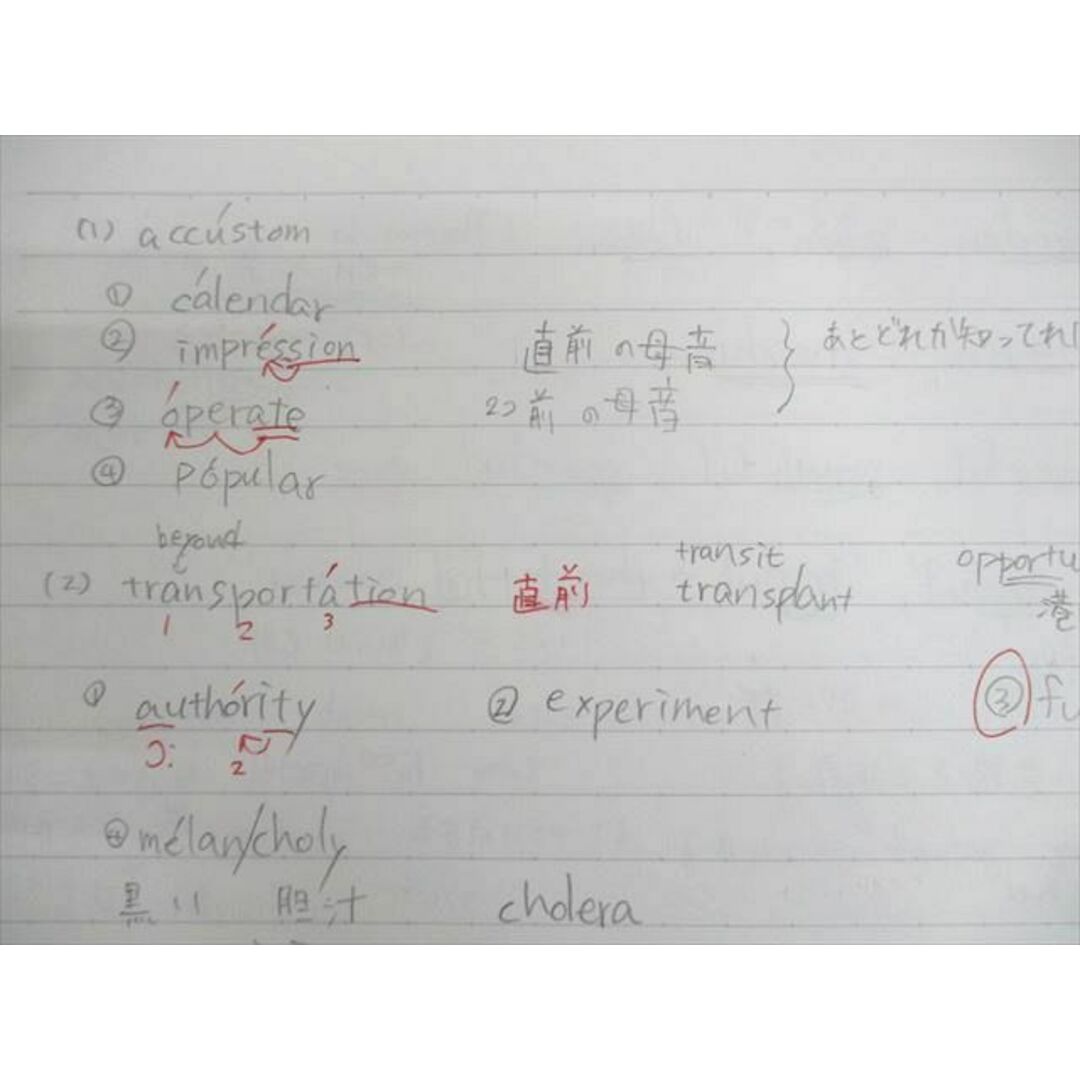 (1) accústom
① cálendar
② impréssion 直前の母音 } あとどれか知ってれ
③ óperate 2つ前の母音
④ pópular
beyond transit opportu
(2) transportátion 直前 transplant 港
1 2 3
① authórity ② experiment ③ fu
ɔ: 2
④ mélan/choly
黒い 胆汁 cholera